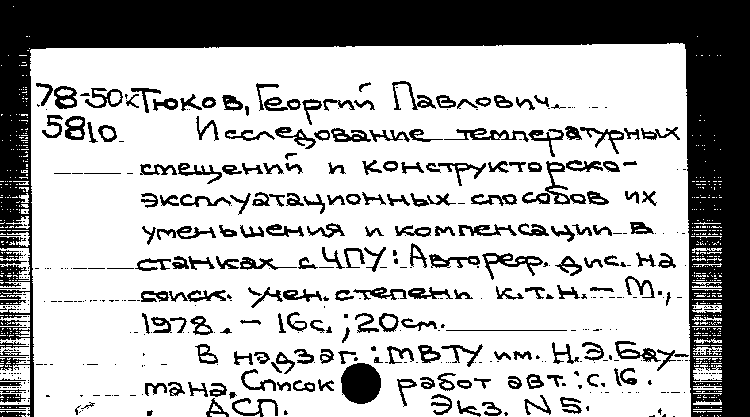 78-50к Тюков, Георгий Павлович.
5810 Исследование температурных
смещений и конструкторско-
эксплуатационных способов их
уменьшения и компенсации в
станках с ЧПУ: Автореф. дис. на
соиск. учен. степени к.т.н. – М.,
1978. – 16с.; 20см.
В надзаг.: МВТУ им. Н.Э.Бау-
мана. Список работ авт.: с.16.
АСП. Экз. N5.